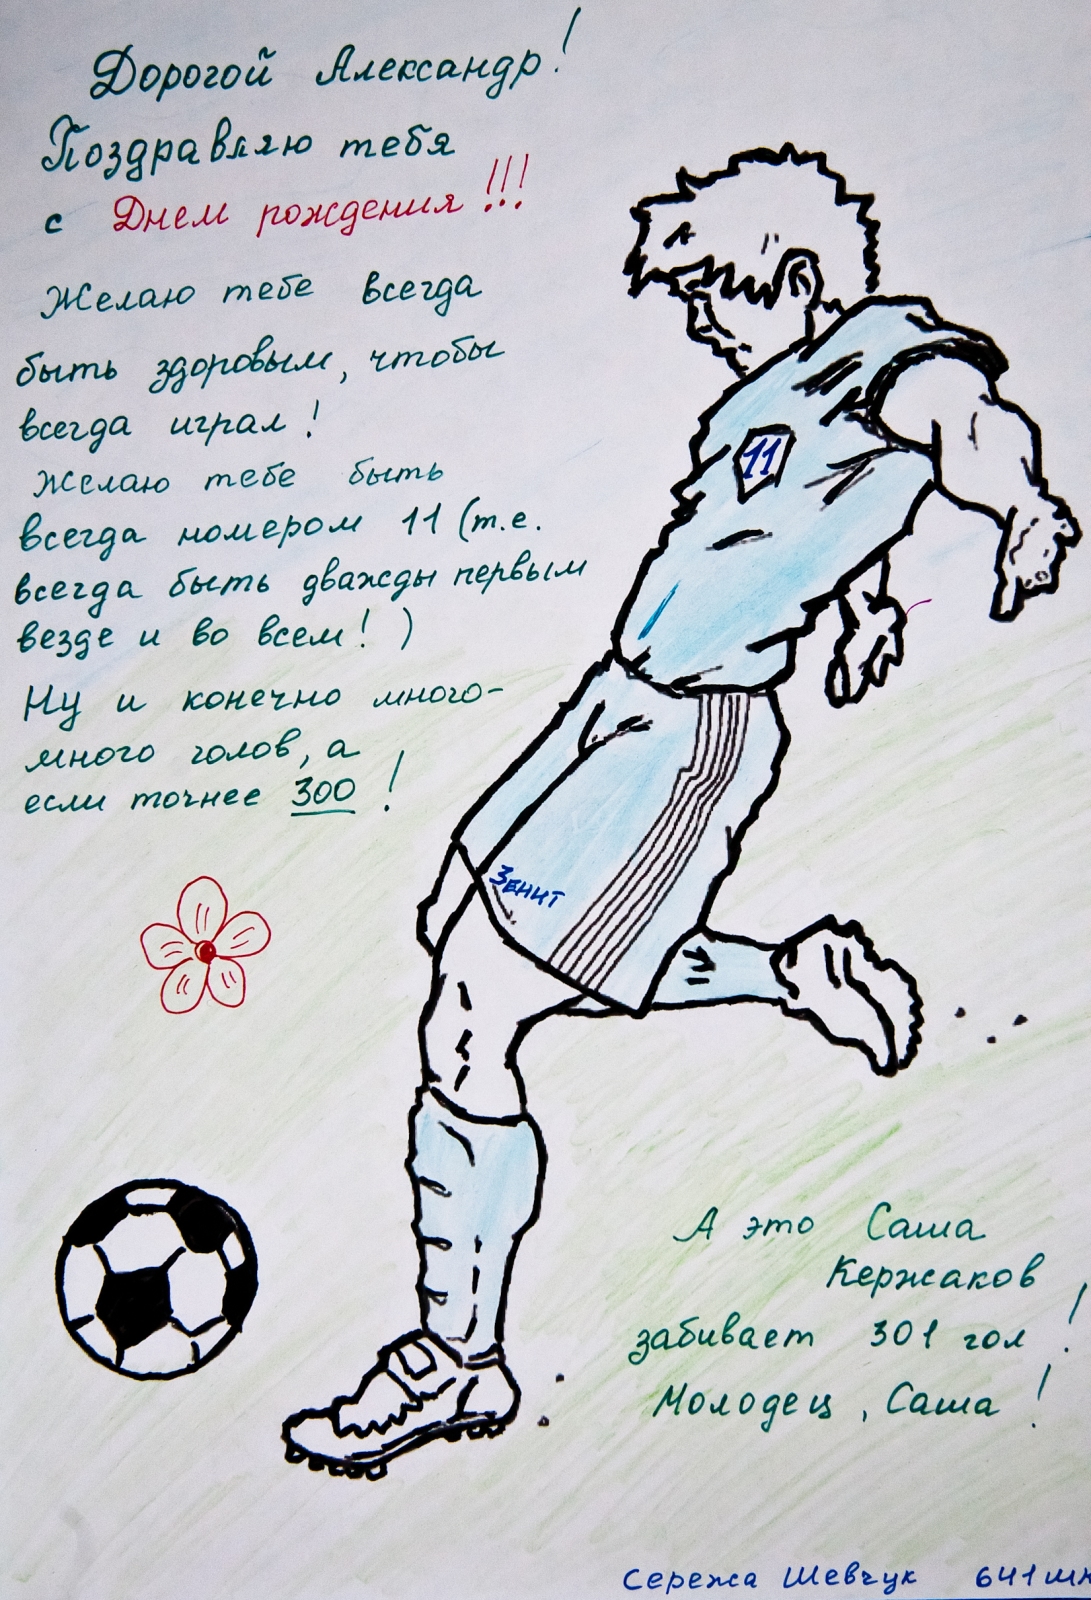 Дорогой Александр!
Поздравляю тебя
с Днем рождения!!!
Желаю тебе всегда
быть здоровым, чтобы
всегда играл!
Желаю тебе быть
всегда номером 11 (т.е.
всегда быть дважды первым
везде и во всем!)
Ну и конечно много-
много голов, а
если точнее 300!
11
Зенит
А это Саша
Кержаков
забивает 301 гол!
Молодец, Саша!
Сережа Шевчук 641 шк